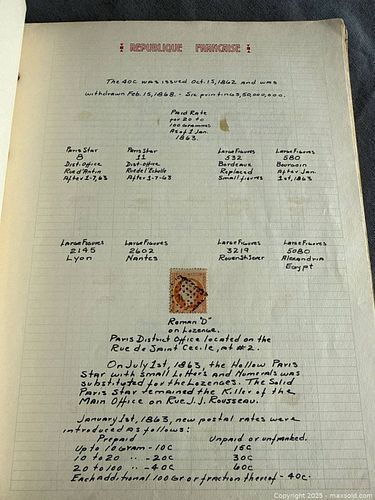 REPUBLIQUE FRANCAISE
The 40C was issued Oct. 13, 1862 and was
withdrawn Feb. 15, 1868. - Six printings, 50,000,000.
Paid Rate
per 20 to
100 Grammes
As of 1 Jan.
1863.
Paris Star Paris Star Large Figures Large Figures
8 11 532 580
Dist. Office Dist. Office Bordeaux Bourgoin
Rue d'Antin Rue de l'Echelle Replaced After Jan.
After 1-7, 63 After 1-7-63 Small figures 1st, 1863
Large Figures Large Figures Large Figures Large Figures
2145 2602 3219 5080
Lyon Nantes Rouen St. Sever Alexandria
Egypt
Roman "D"
on Lozenge.
Paris District Office located on the
Rue de Saint Cecile, at #2.
On July 1st, 1863, the Hollow Paris
Star with Small Letters and Numerals was
substituted for the Lozenges. The Solid
Paris Star remained the Killer of the
Main Office on Rue J.J. Rousseau.
January 1st, 1863, new postal rates were
introduced as follows:
Prepaid Unpaid or unfranked.
Up to 10 Gram - 10C 15C
10 to 20 " - 20C 30C
20 to 100 " - 40C 60C
Each additional 100 Gr or fraction thereof - 40C.
Copyright 2025 - maxsold.com